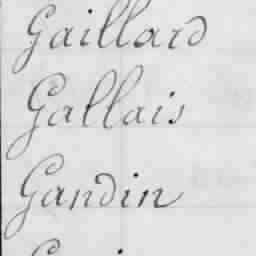 Gaillard
Gallais
Gandin